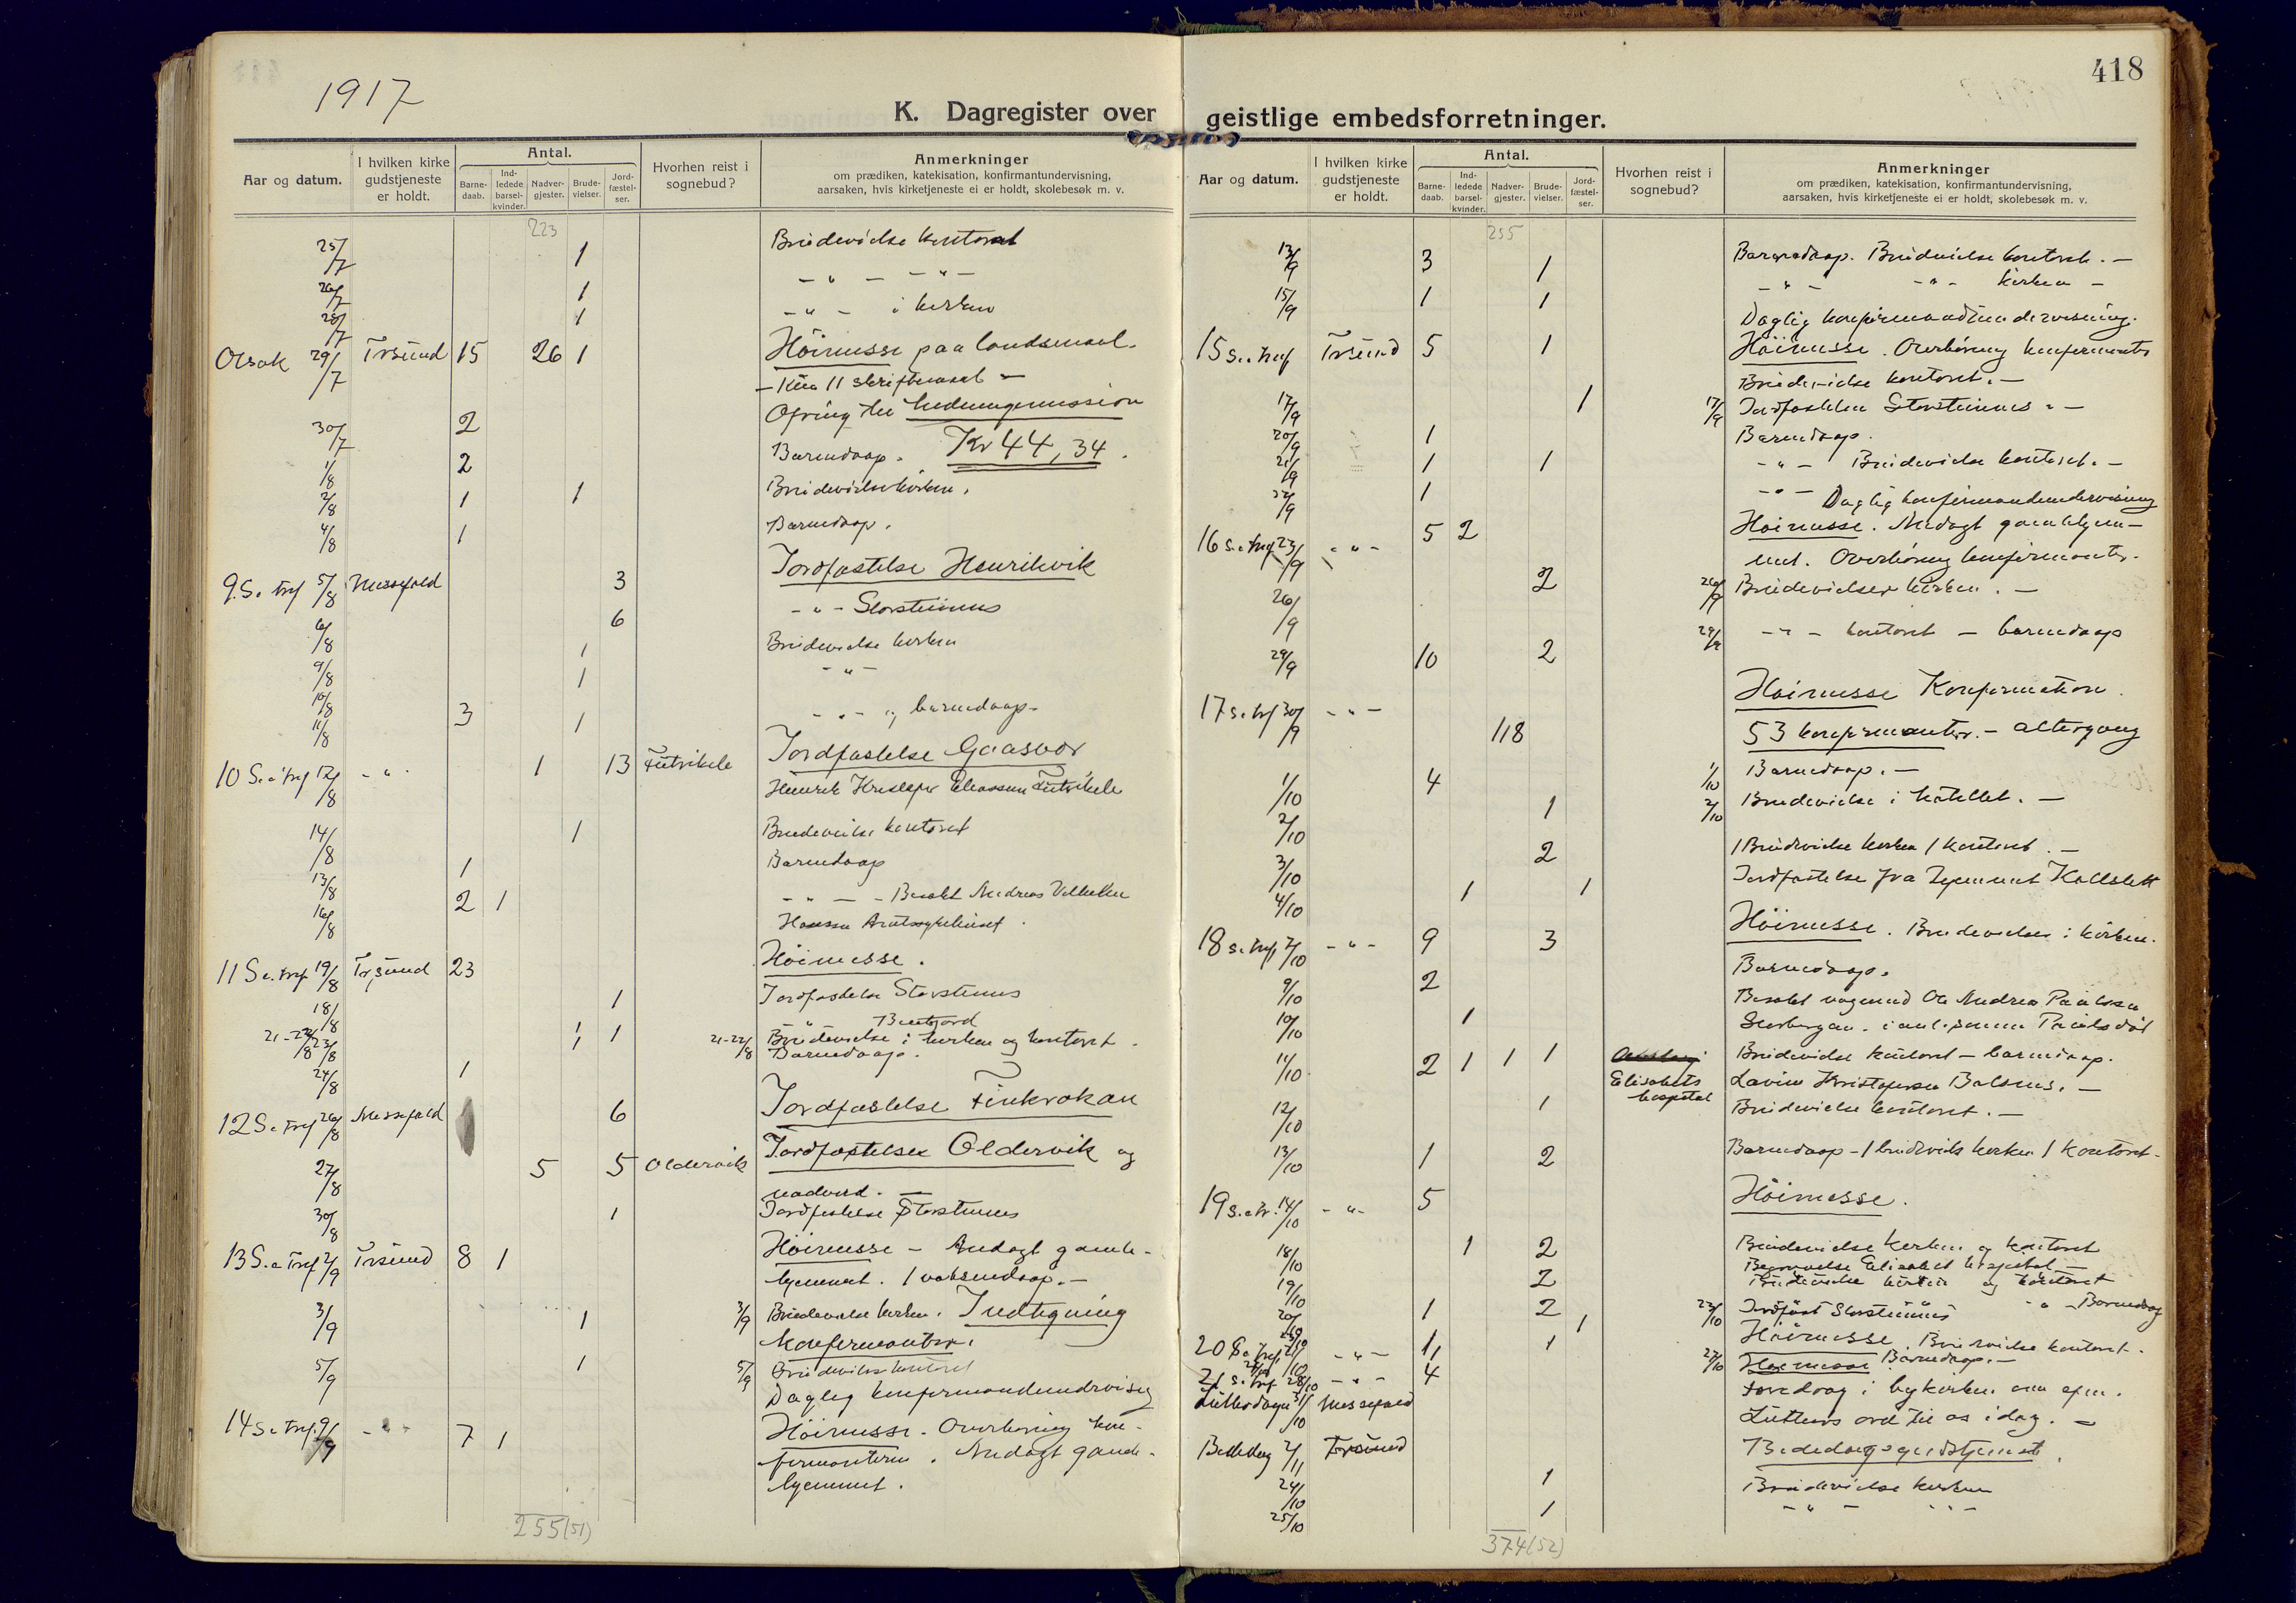 1917
K. Dagregister over
Aar og datum.
I hvilken kirke gudstjeneste er holdt.
Antal.
Barne-daab.
Ind-ledede barsel-kvinder.
Nadver-gjester.
Brude-vielser.
Jord-fæstel-ser.
Hvorhen reist i sognebud?
Anmerkninger
om prædiken, katekisation, konfirmantundervisning,
aarsaken, hvis kirketjeneste ei er holdt, skolebesøk m. v.
223
25/7 1 Brudevielse kontoret
26/7 1 - " - - " -
28/7 1 - " - i kirken
Olsok 29/7 Trsund 15 26 1 Höimesse paa landsmaal.
- 11 skriftemaal -
Ofring til hedningemission
30/7 2 Barnedaap. Kr 44,34.
1/8 2 Brudevielse kirken.
2/8 1 1
4/8 1 Barnedaap.
9. S. e tref 5/8 Messefald 3 Jordfæstelse Henrikvik
6/8 6 - " - Storsteinnes
9/8 1 Brudevielse kirken
10/8 1 - " -
11/8 3 1 - " - og barnedaap.
10 S. e. tref 12/8 - " - 1 13 Futrikele Jordfæstelse Gaasvær
Henrik Eliassen Futrikele
14/8 1 Brudevielse kontoret
13/8 1 Barnedaap
16/8 2 1 - " - - Besøkt Andreas
Hansen Amtssykehuset.
11 S. e. tref. 19/8 Trsund 23 Höimesse.
18/8 1 Jordfæstelse Storstennes
21-22/8 1 " Bentsjord
23/8 1 1 21-22/8 Brudevielse i kirken og kontoret.
24/8 1 Barnedaap.
12 S. e tref 26/8 Messefald 6 Jordfæstelse Finkrokan
27/8 5 5 Oldervik Jordfæstelser Oldervik og
nadverd. -
30/8 1 Jordfæstelse Storstennes
13 S. e Tref 2/9 Trsund 8 1 Höimesse - Andagt gamle-
hjemmet. 1 voksendaap. -
3/9 1 3/9 Brudevielse kirken. Indtegning
konfirmanter.
5/9 1 5/9 Brudevielse kontoret
Daglig konfirmandundervisng
14 S. e tref. 9/9 - " - 7 1 Höimesse. Overhøring kon-
firmanterne. Andagt gamle-
hjemmet.
255 (51)
418
geistlige embedsforretninger.
Aar og datum.
I hvilken kirke gudstjeneste er holdt.
Antal.
Barne-daab.
Ind-ledede barsel-kvinder.
Nadver-gjester.
Brude-vielser.
Jord-fæstel-ser.
Hvorhen reist i sognebud?
Anmerkninger
om prædiken, katekisation, konfirmantundervisning,
aarsaken, hvis kirketjeneste ei er holdt, skolebesøk m. v.
255
13/9 3 1 Barnedaap. Brudevielse kontoret. -
15/9 1 1 - " - - " - kirken -
Daglig konfirmandundervisning.
15 S. e. tref Trsund 5 1 Höimesse. Overhöring konfirmanter
Brudevielse kontoret. -
17/9 1 17/9 Jordfæstelse Storsteinnes. -
20/9 1 Barnedaap.
21/9 1 1 - " - Brudevielse kontoret. -
22/9 1 - " - Daglig konfirmandundervisning
16 S. e. tref 23/9 - " - 5 2 Höimesse. Andagt gamlehjem-
met. Overhöring konfirmanter.
26/9 2 26/9 Brudevielser kirken. -
29/9 10 2 29/9 - " - kontoret - barnedaap
17 S. e. tref 30/9 - " - 118 Höimesse Konfirmation.
53 konfirmanter. - altergang
1/10 4 1/10 Barnedaap. -
2/10 1 2/10 Brudevielse i hotellet. -
3/10 2 1 Brudevielse kirken 1 kontoret. -
4/10 1 1 Jordfæstelse fra hjemmet Kallslett
18 S. e. tref 7/10 - " - 9 3 Höimesse. Brudevielser i kirken.
9/10 2 Barnedaap.
10/10 1 Besøkt Ole Andrea
11/10 2 1 1 1 Elisabets hospital Brudevielse kontoret - barnedaap.
Kristofersen Balsnes. -
12/10 1 Brudevielse kontoret. -
13/10 1 2 Barnedaap - 1 brudeviels kirken 1 kontoret -
19 S. e tr. 14/10 - " - 5 Höimesse.
18/10 1 2 Brudevielse kirken og kontoret
Elisabet hospital -
19/10 2 Brudevielse kirken og kontoret
20/10 1 2 - " - Barnedaap
1 23/10 Jordfæst Storsteinnes
20 S. e. tref 21/10 - " - 1 Höimesse. Brudevielse kontoret.
27/10 1 1 27/10 Barnedaap. -
21 S. e. tref 28/10 - " - 4 Höimesse
Luthersdagen 31/10 Messefald Foredrag i bykirken om efm.
Luthers ord til os idag. -
Bededag 2/11 Trsund Bededagsgudstjeneste.
24/10 1 Brudevielse kirken
25/10 1 - " - - " -
374 (52)